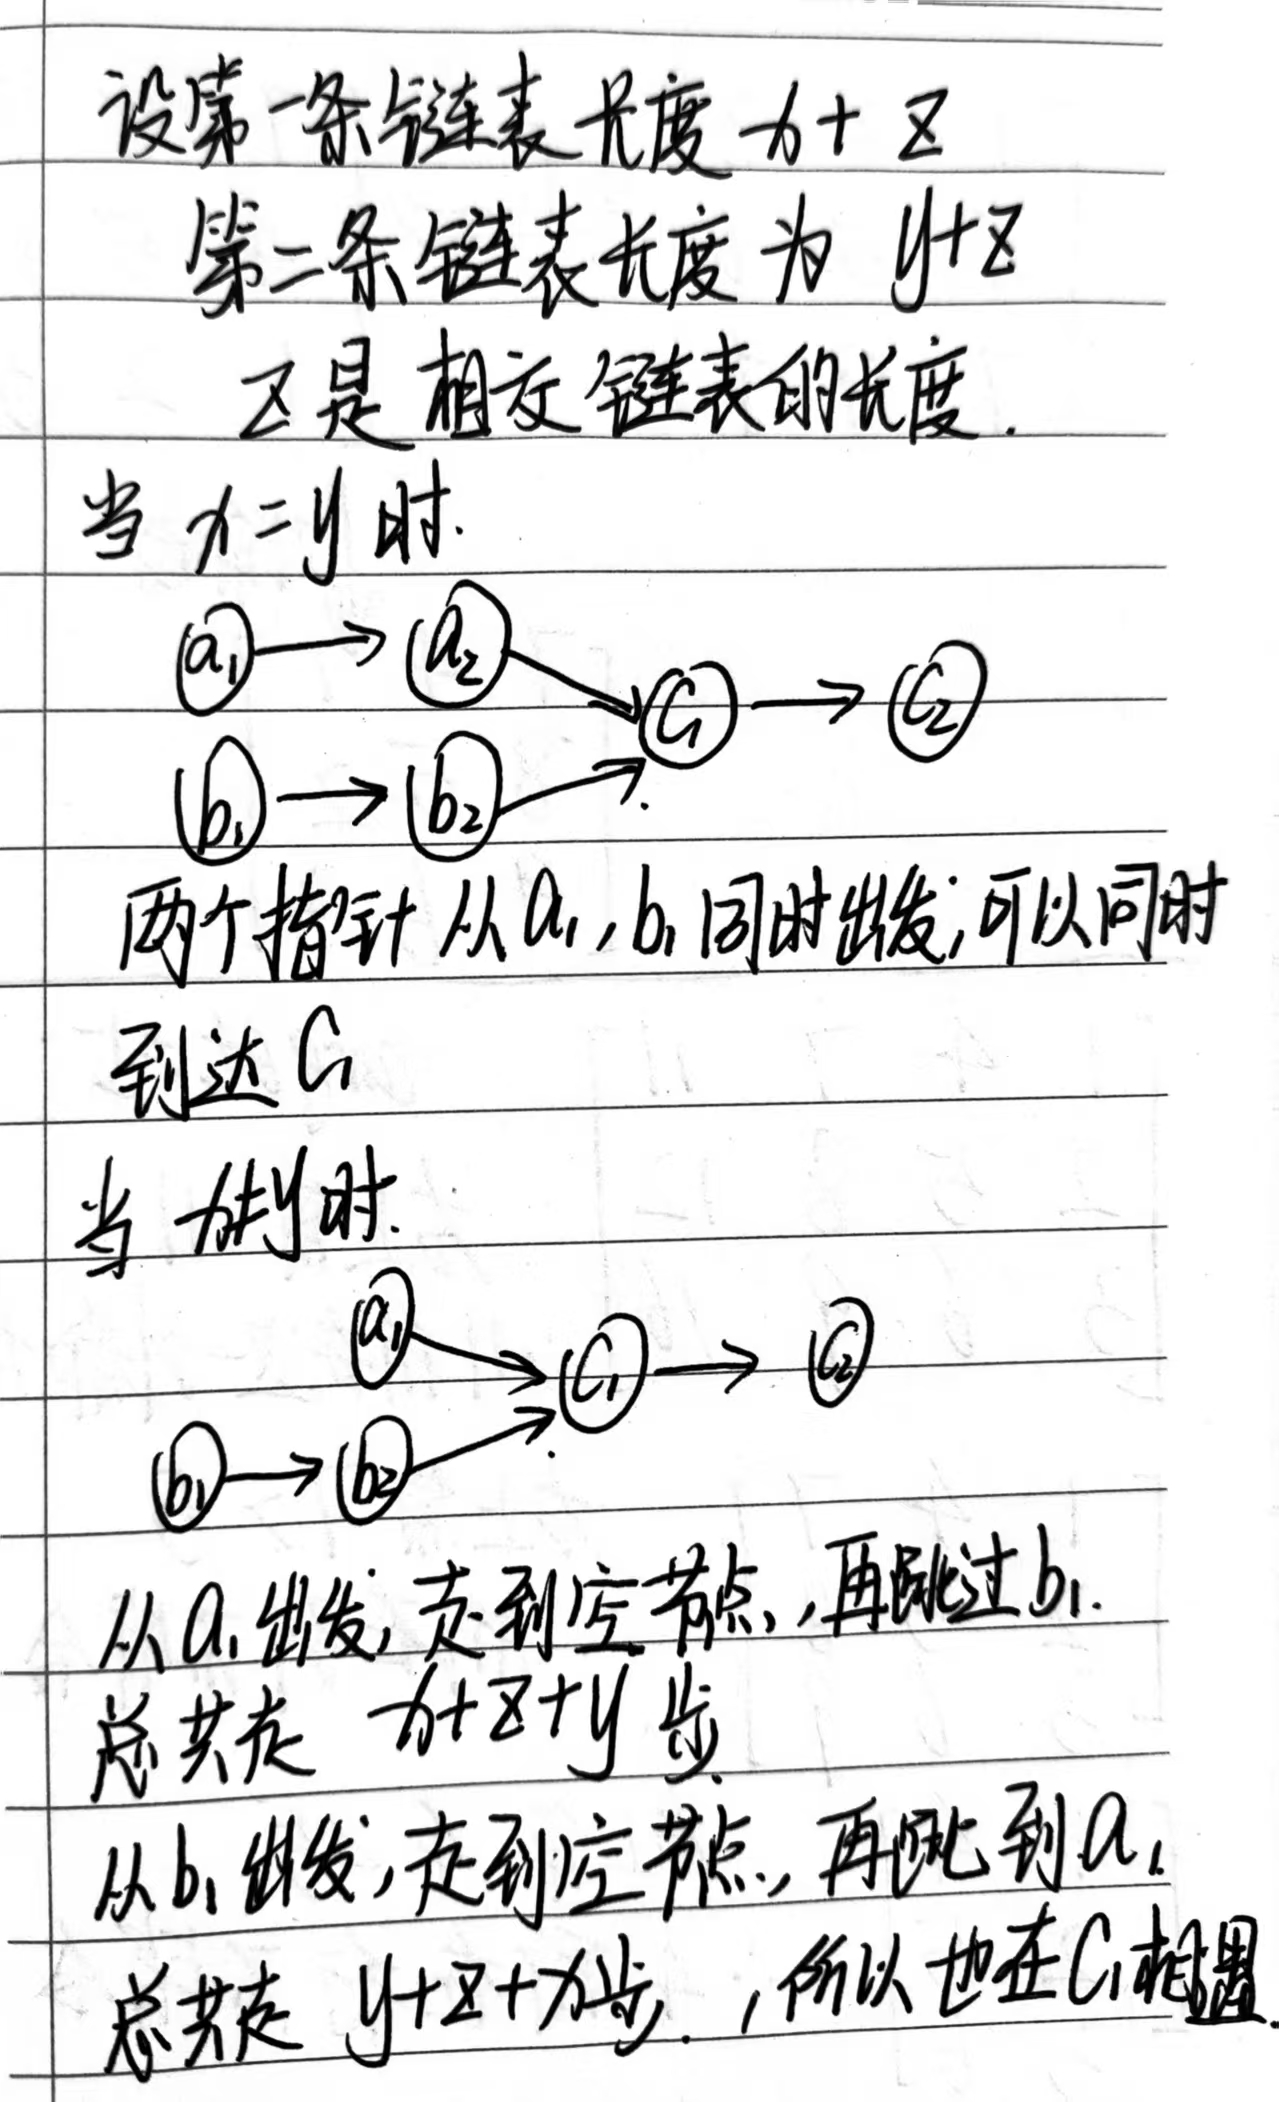 设第一条链表长度 x+z
第二条链表长度为 y+z
z是相交链表的长度.
当 x=y 时.
a₁ a₂ c₁ c₂
b₁ b₂
两个指针从a₁,b₁同时出发,可以同时
到达 C₁
当 x≠y时.
a₁ c₁ c₂
b₁ b₂
从a₁出发,走到空节点,,再跳过b₁.
总共走 x+z+y 步.
从b₁出发,走到空节点.,再跳到a₁.
总共走 y+z+x步.,所以也在C₁相遇.